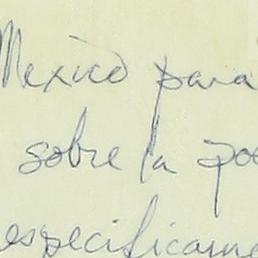 Mexico para
sobre la poe
especificame